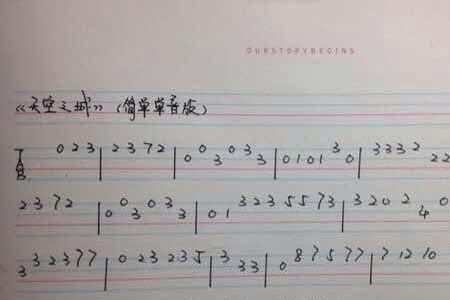 OURSTORYBEGINS
《天空之城》(简单单音版)
TAB 0 2 3 | 2 3 7 2 | 0 0 3 0 3 3 | 0 1 0 1 3 0 | 3 3 3 2 2 2
2 3 7 2 | 0 0 3 0 3 3 | 0 1 3 2 3 5 5 7 3 | 3 2 0 2 4 0
3 3 2 3 7 7 | 0 2 3 2 3 5 | 3 3 3 | 0 8 7 5 7 7 | 7 12 10